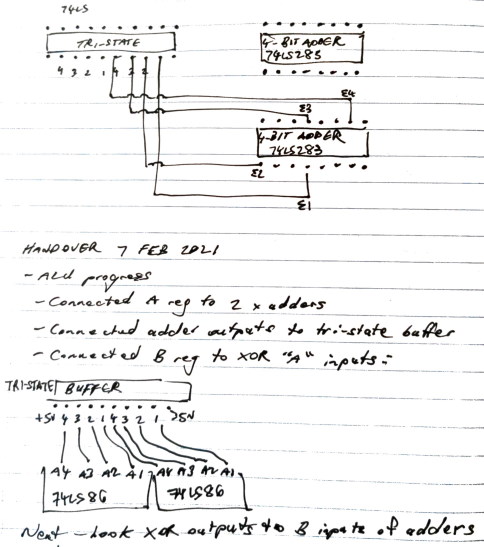 74LS
TRI-STATE
4 3 2 1 4 3 2
4-BIT ADDER
74LS283
Σ4
Σ3
4-BIT ADDER
74LS283
Σ2
Σ1
HANDOVER 7 FEB 2021
- ALU progress
- Connected A reg to 2 x adders
- Connected adder outputs to tri-state buffer
- Connected B reg to XOR "A" inputs:
TRI-STATE BUFFER
+5V 4 3 2 1 4 3 2 1 5V
A4 A3 A2 A1 A4 A3 A2 A1
74LS86 74LS86
Next - Look XOR outputs to B inputs of adders